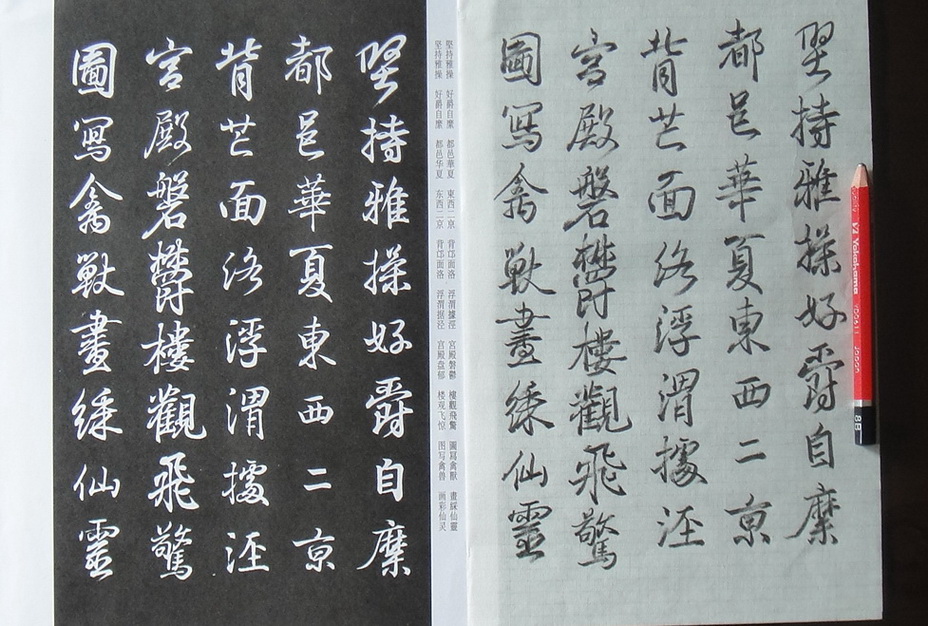 堅持雅操好爵自縻
都邑華夏東西二京
背芒面洛浮渭據涇
宮殿磐鬱樓觀飛驚
圖寫禽獸畫綵仙靈
堅持雅操 好爵自縻 都邑華夏 東西二京 背邙面洛 浮渭據涇 宮殿磐鬱 樓觀飛驚 圖寫禽獸 畫綵仙靈
坚持雅操 好爵自縻 都邑华夏 东西二京 背邙面洛 浮渭据泾 宫殿盘郁 楼观飞惊 图写禽兽 画彩仙灵
堅持雅操好爵自縻
都邑華夏東西二京
背芒面洛浮渭據涇
宮殿磐鬱樓觀飛驚
圖寫禽獸畫綵仙靈
Yokohama
8B